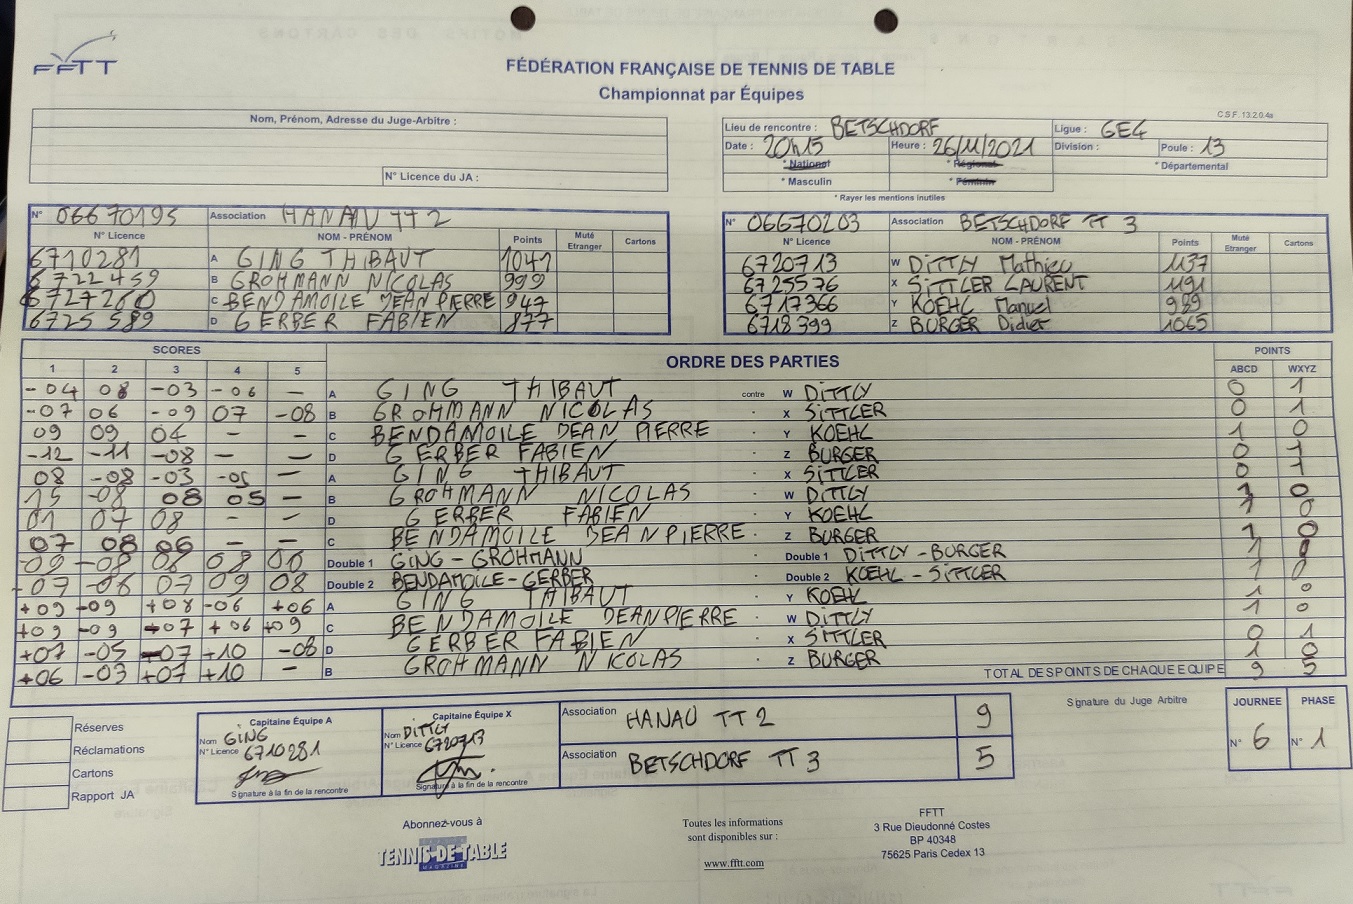 FFTT
FÉDÉRATION FRANÇAISE DE TENNIS DE TABLE
Championnat par Équipes
C.S.F. 13.2.0.4a
Nom, Prénom, Adresse du Juge-Arbitre :
N° Licence du JA :
Lieu de rencontre : BETSCHDORF Ligue : GE4
Date : 20h15 Heure : 26/11/2021 Division : Poule : 13
* National * Régional * Départemental
* Masculin * Féminin
* Rayer les mentions inutiles
N° 06670195 Association HANAU TT 2
N° Licence NOM - PRÉNOM Points Muté Etranger Cartons
6710281 A GING THIBAUT 1041
6722459 B GROHMANN NICOLAS 999
6727260 C BENDAMOILE JEAN PIERRE 947
6725589 D GERBER FABIEN 877
N° 06670203 Association BETSCHDORF TT 3
N° Licence NOM - PRÉNOM Points Muté Etranger Cartons
6720713 W DITTLY Mathieu 1137
6725576 X SITTLER LAURENT 1191
6717366 Y KOEHL Manuel 989
6718399 Z BURGER Didier 1065
SCORES ORDRE DES PARTIES POINTS
1 2 3 4 5 ABCD WXYZ
-04 08 -03 -06 — A GING THIBAUT contre W DITTLY 0 1
-07 06 -09 07 -08 B GROHMANN NICOLAS - X SITTLER 0 1
09 09 04 — — C BENDAMOILE JEAN PIERRE - Y KOEHL 1 0
-12 -11 -08 — — D GERBER FABIEN - Z BURGER 0 1
08 -08 -03 -05 — A GING THIBAUT - X SITTLER 0 1
15 -08 08 05 — B GROHMANN NICOLAS - W DITTLY 1 0
01 07 08 — — D GERBER FABIEN - Y KOEHL 1 0
07 08 06 — — C BENDAMOILE JEAN PIERRE - Z BURGER 1 0
-09 -08 08 09 Double 1 GING - GROHMANN Double 1 DITTLY - BURGER 1 0
+07 -06 07 09 08 Double 2 BENDAMOILE - GERBER Double 2 KOEHL - SITTLER 1 0
+09 -09 +08 -06 +06 A GING THIBAUT - Y KOEHL 1 0
+09 -09 -07 +06 +09 C BENDAMOILE JEAN PIERRE - W DITTLY 1 0
+07 -05 -07 +10 -08 D GERBER FABIEN - X SITTLER 0 1
+06 -03 +07 +10 — B GROHMANN NICOLAS - Z BURGER 1 0
TOTAL DES POINTS DE CHAQUE EQUIPE 9 5
Réserves
Réclamations
Cartons
Rapport JA
Capitaine Équipe A
Nom GING
N° Licence 6710281
Signature à la fin de la rencontre
Capitaine Équipe X
Nom DITTLY
N° Licence 6720713
Signature à la fin de la rencontre
Association HANAU TT 2 9
Association BETSCHDORF TT 3 5
Signature du Juge Arbitre
JOURNEE PHASE
N° 6 N° 1
Abonnez-vous à
TENNIS DE TABLE
MAGAZINE
Toutes les informations
sont disponibles sur :
www.fftt.com
FFTT
3 Rue Dieudonné Costes
BP 40348
75625 Paris Cedex 13